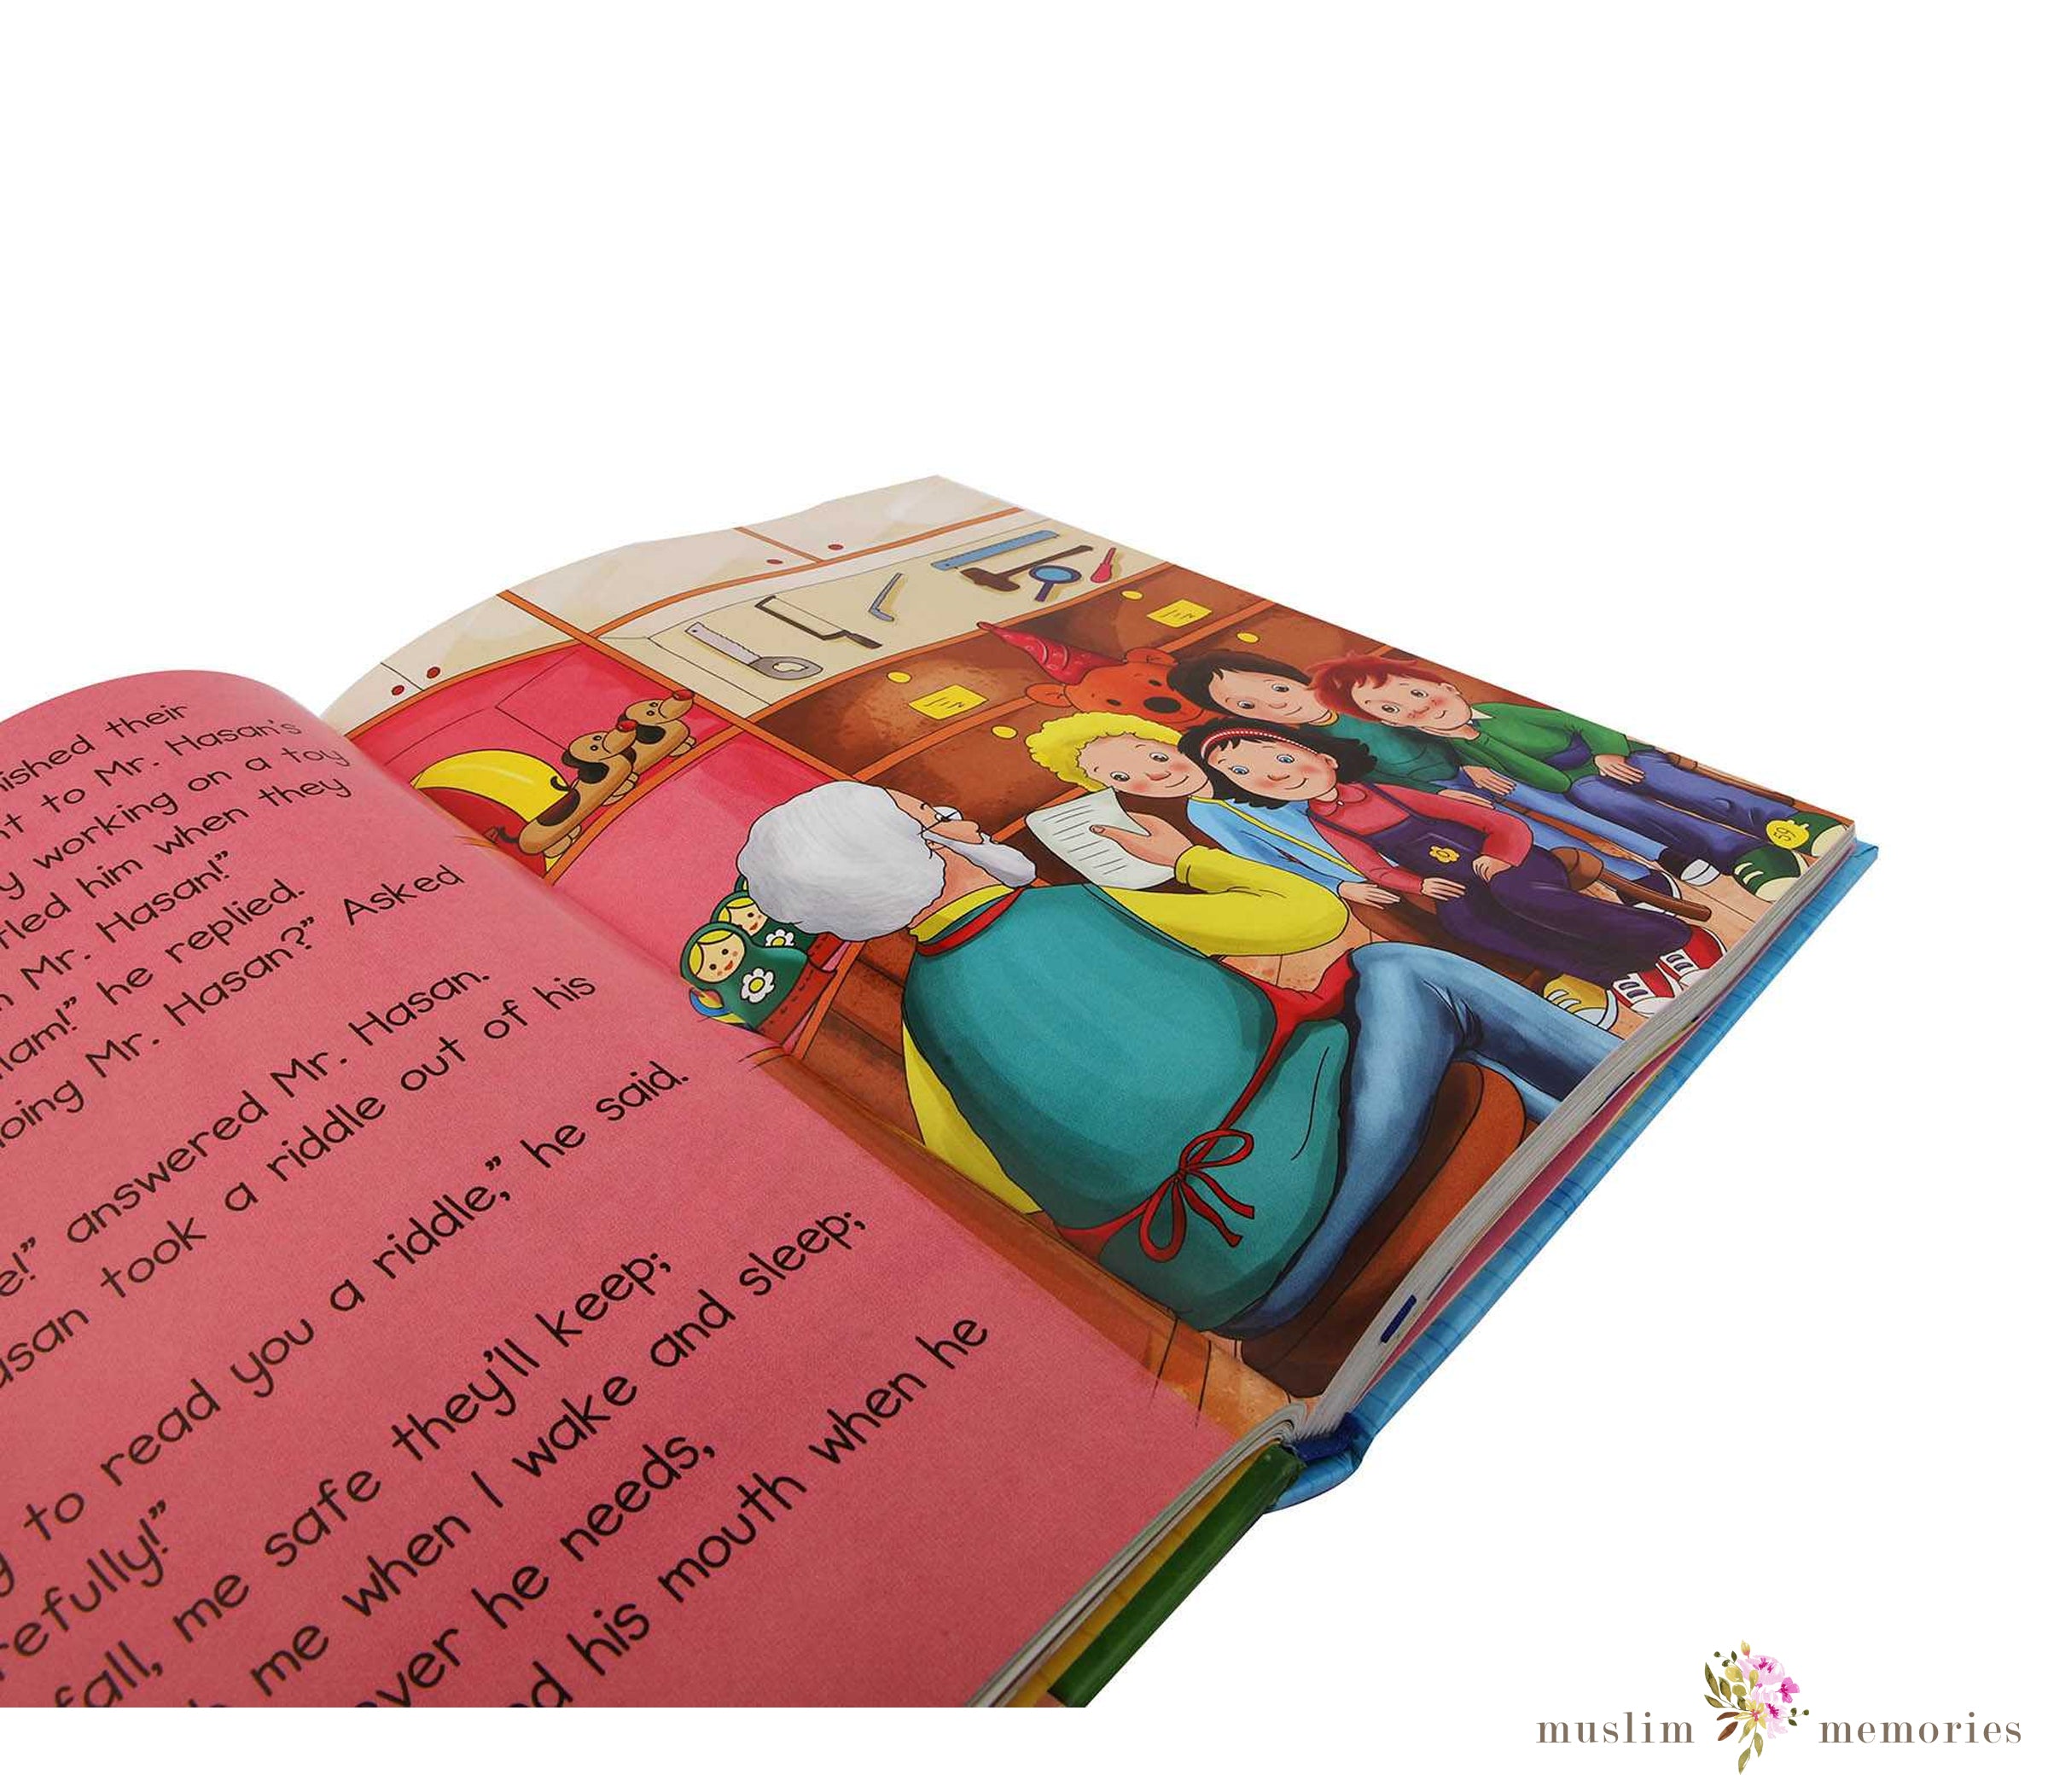 their
to Mr. Hasan's
working on a toy
him when they
Mr. Hasan!”
he replied.
Mr. Hasan?” Asked
answered Mr. Hasan.
took a riddle out of his
to read you a riddle,” he said.
fall, me safe they’ll keep;
me when I wake and sleep;
he needs,
his mouth when he
59
muslim memories